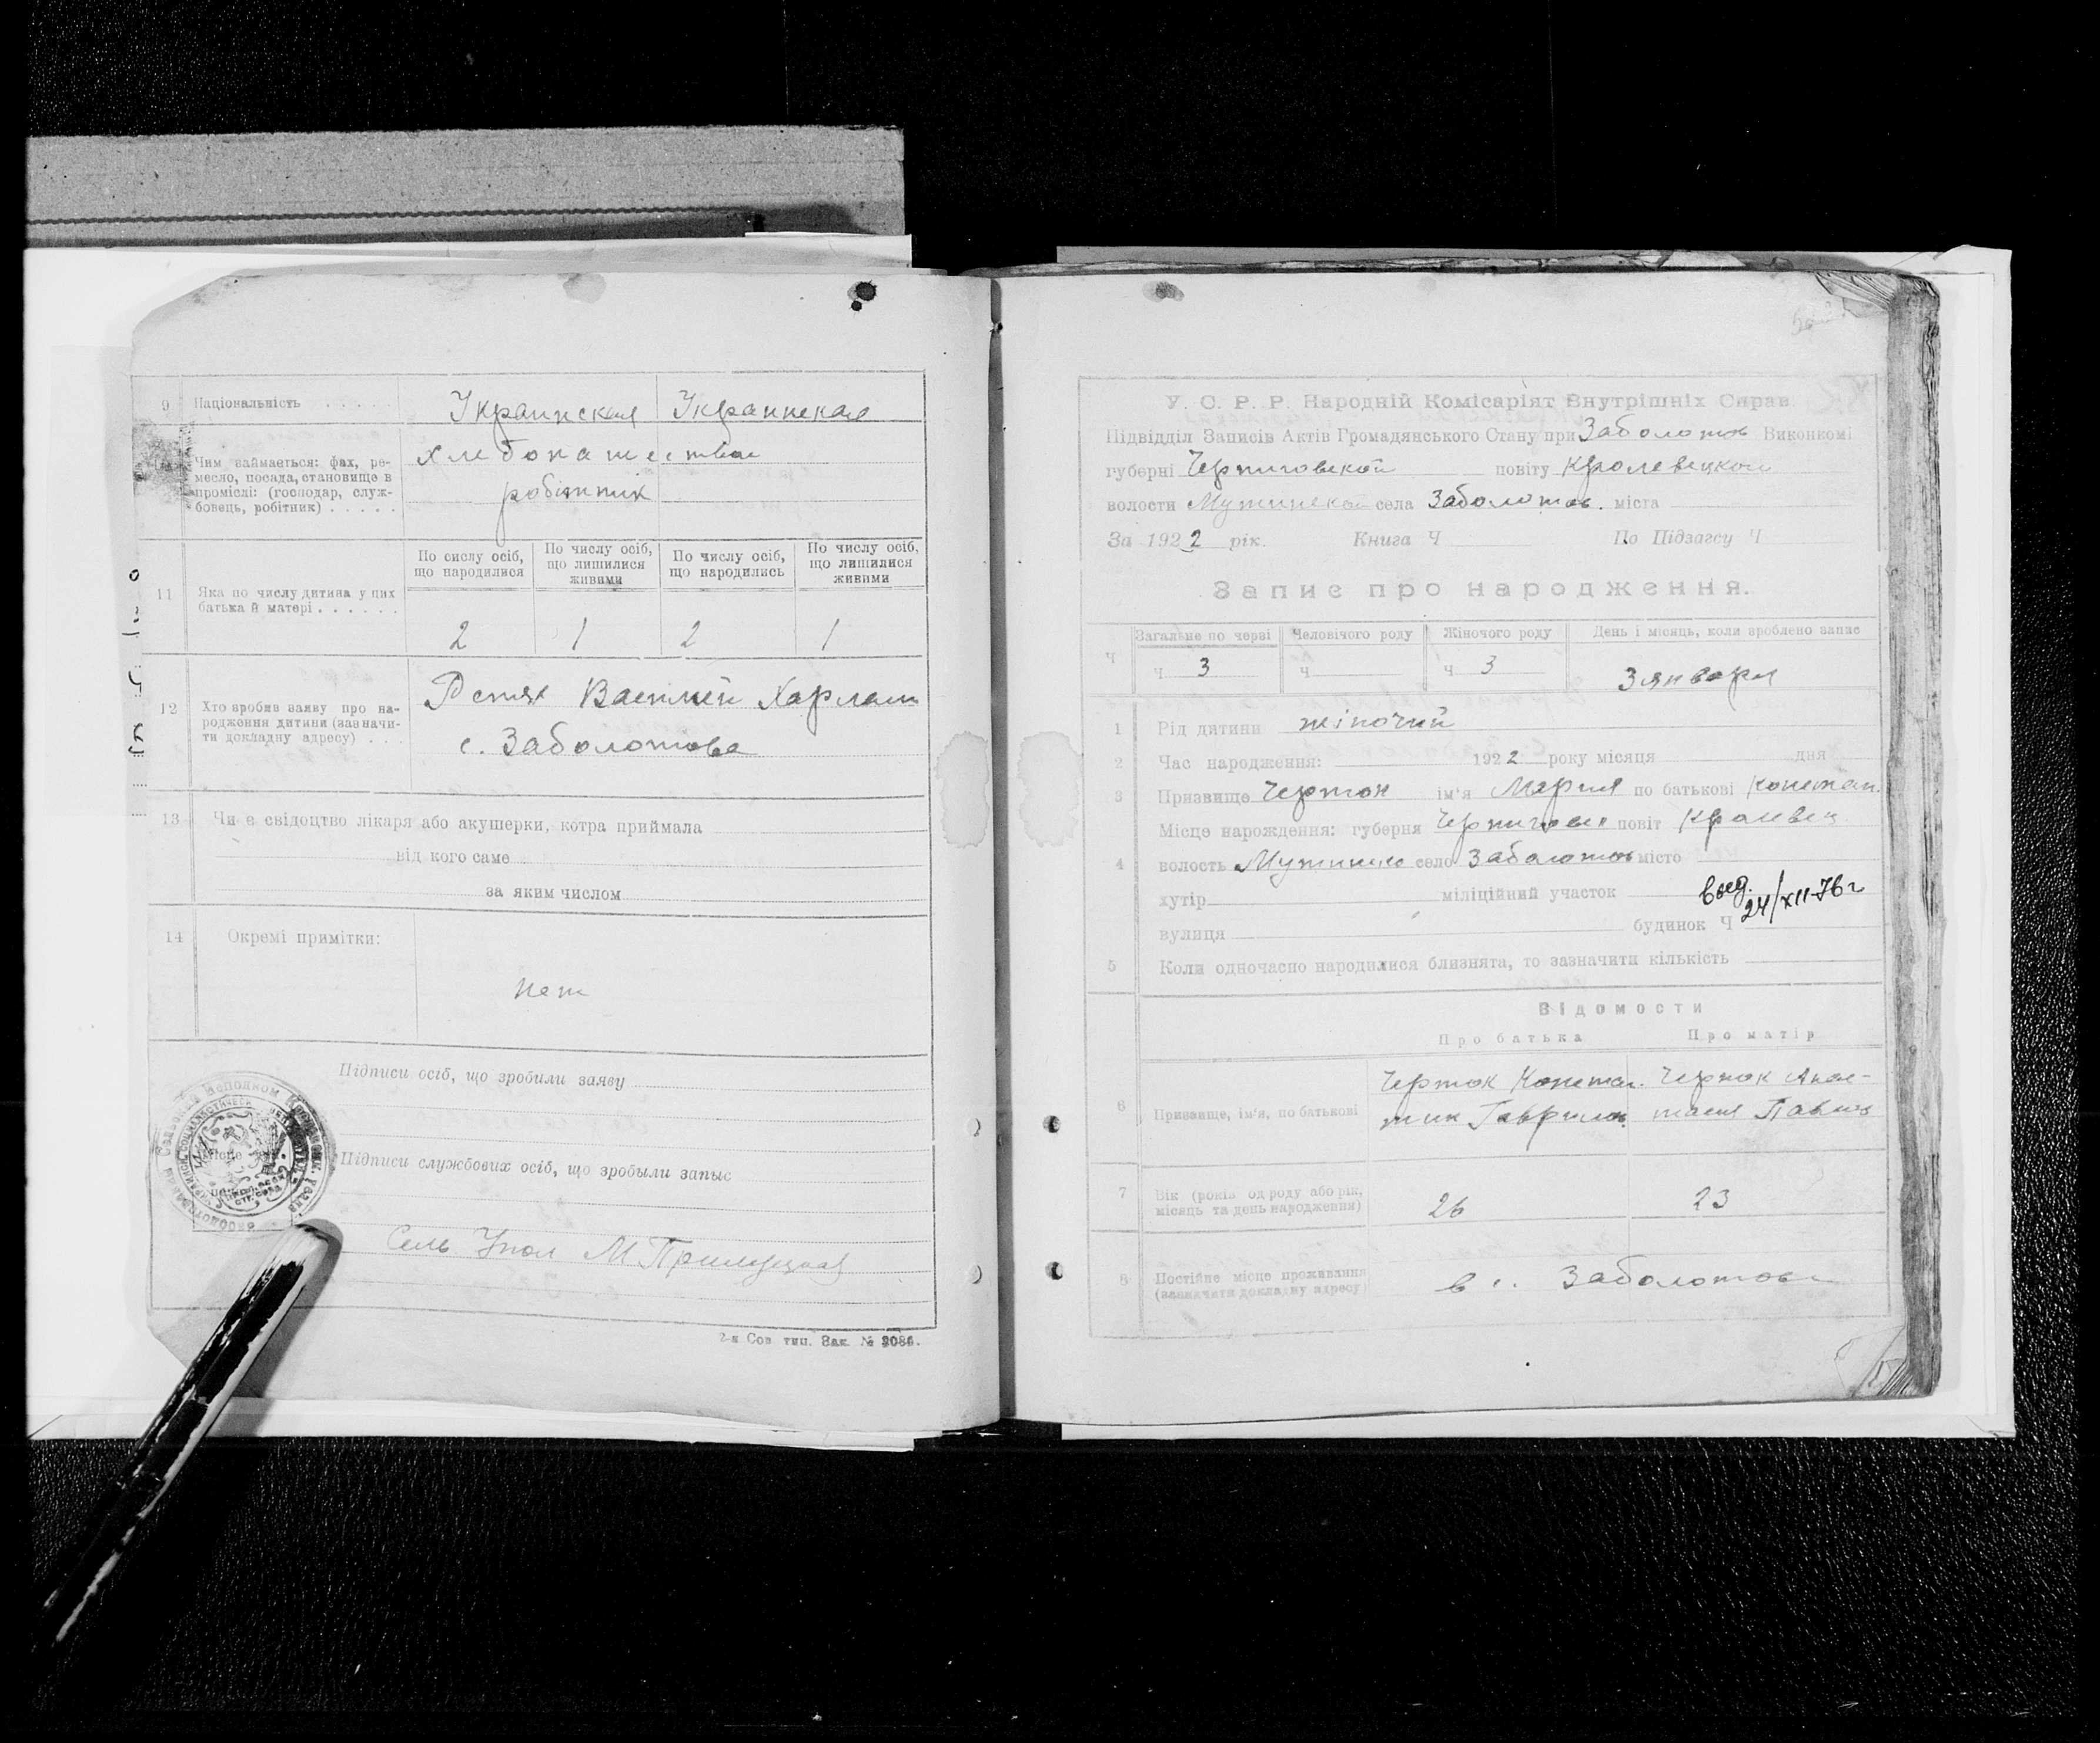 9 Національність . . . . . Украинская Украинская
Чим займається: фах, ре-
месло, посада, становище в
промислі: (господар, служ-
бовець, робітник) . . . . .
хлебопашество
робітник
11 Яка по числу дитина у цих
батька й матері . . . . . .
По сислу осіб,
що народилися
По числу осіб,
що лишилися
живими
По числу осіб,
що народились
По числу осіб,
що лишилися
живими
2 1 2 1
12 Хто зробив заяву про на-
родження дитини (зазначи-
ти докладну адресу) . . .
Василий Харлам
с. Заболотова
13 Чи є свідоцтво лікаря або акушерки, котра приймала
від кого саме
за яким числом
14 Окремі примітки:
нет
Підписи осіб, що зробили заяву
Підписи службових осіб, що зробыли запыс
Сель Упол М
2-я Сов тип. Зак. №
У. С. Р. Р. Народній Комісаріят Внутрішніх Справ
Підвідділ Записів Актів Громадянського Стану при Заболотов Виконкомі
губерні Черниговской повіту Кролевецкой
волости Мутинской села Заболотов. міста
За 1922 рік. Книга Ч По Підзагсу Ч
Запис про народження.
Ч
Загальне по черзі Человічого роду Жіночого роду День і місяць, коли зроблено запис
Ч 3 Ч Ч 3 3 января
1 Рід дитини жіночий
2 Час народження: 1922 року місяця дня
3 Призвище Черток ім'я Мария по батькові Констан.
Місце нарождення: губерня Чернигов повіт Кролевец
4 волость Мутинск село Заболотов місто
хутір міліційний участок
выд.
24/XII-76 г
вулиця будинок Ч
5 Коли одночасно народилися близнята, то зазначити кількість
Відомости
Про батька Про матір
6 Призвище, ім'я, по батькові
Черток Констан-
тин Гаврилов
Черток Анас-
тасия Павлов
7 Вік (років од роду або рік,
місяць та день народження)
26 23
8 Постійне місце проживання
(зазначити докладну адресу)
в с. Заболотове